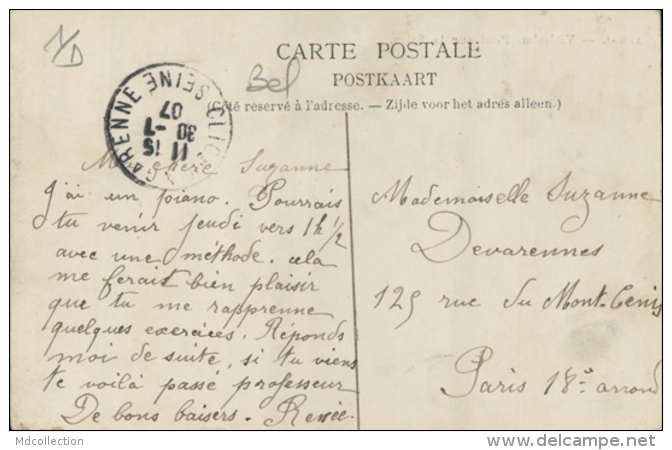 N/D
Bel
CARTE POSTALE
POSTKAART
(Côté reservé à l'adresse. — Zijde voor het adres alleen.)
GARENNE SEINE
11 15
30 -7
07
Ma chère Suzanne
J'ai un piano. Pourrais
tu venir jeudi vers 1h 1/2
avec une méthode. cela
me ferait bien plaisir
que tu me rapprenne
quelques exercices. Réponds
moi de suite, si tu viens
te voilà passé professeur
De bons baisers. Renée
Mademoiselle Suzanne
Devarennes
125 rue du Mont-Cenis
Paris 18e arrond
Mdcollection
http://www.delcampe.net